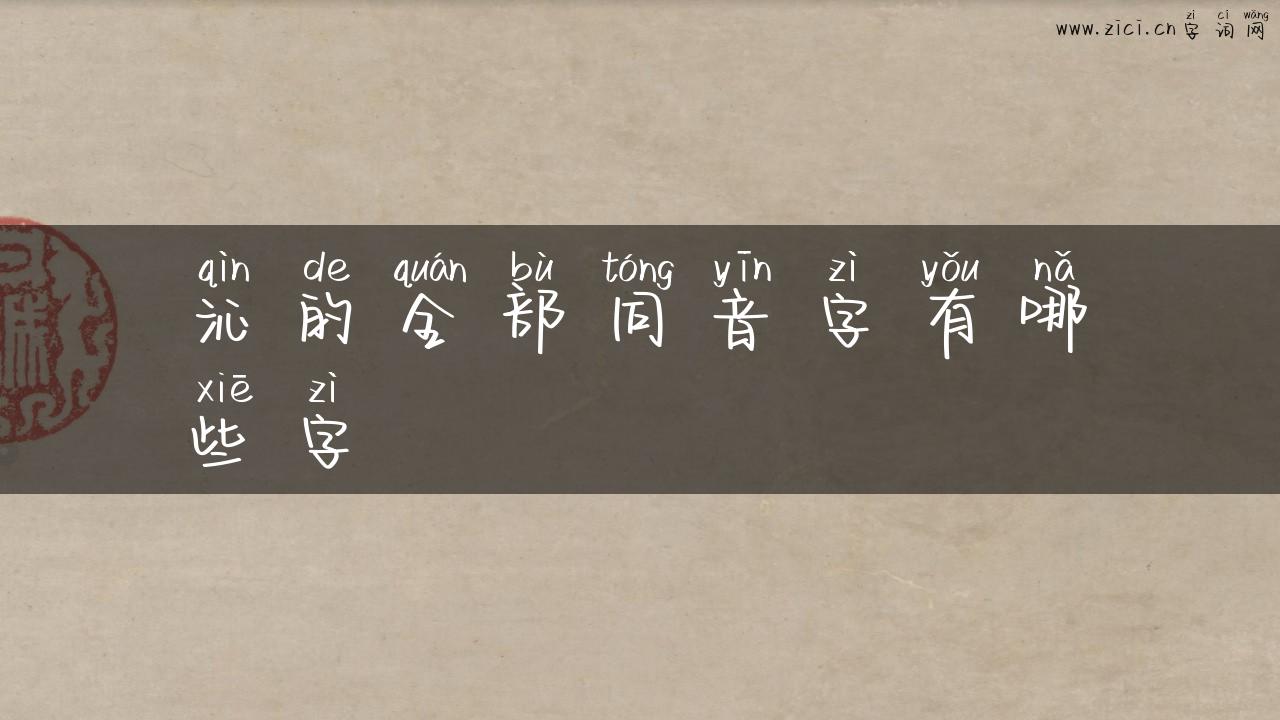 zì cí wǎng
www.zici.cn 字 词 网
qìn de quán bù tóng yīn zì yǒu nǎ
沁 的 全 部 同 音 字 有 哪
xiē zì
些 字